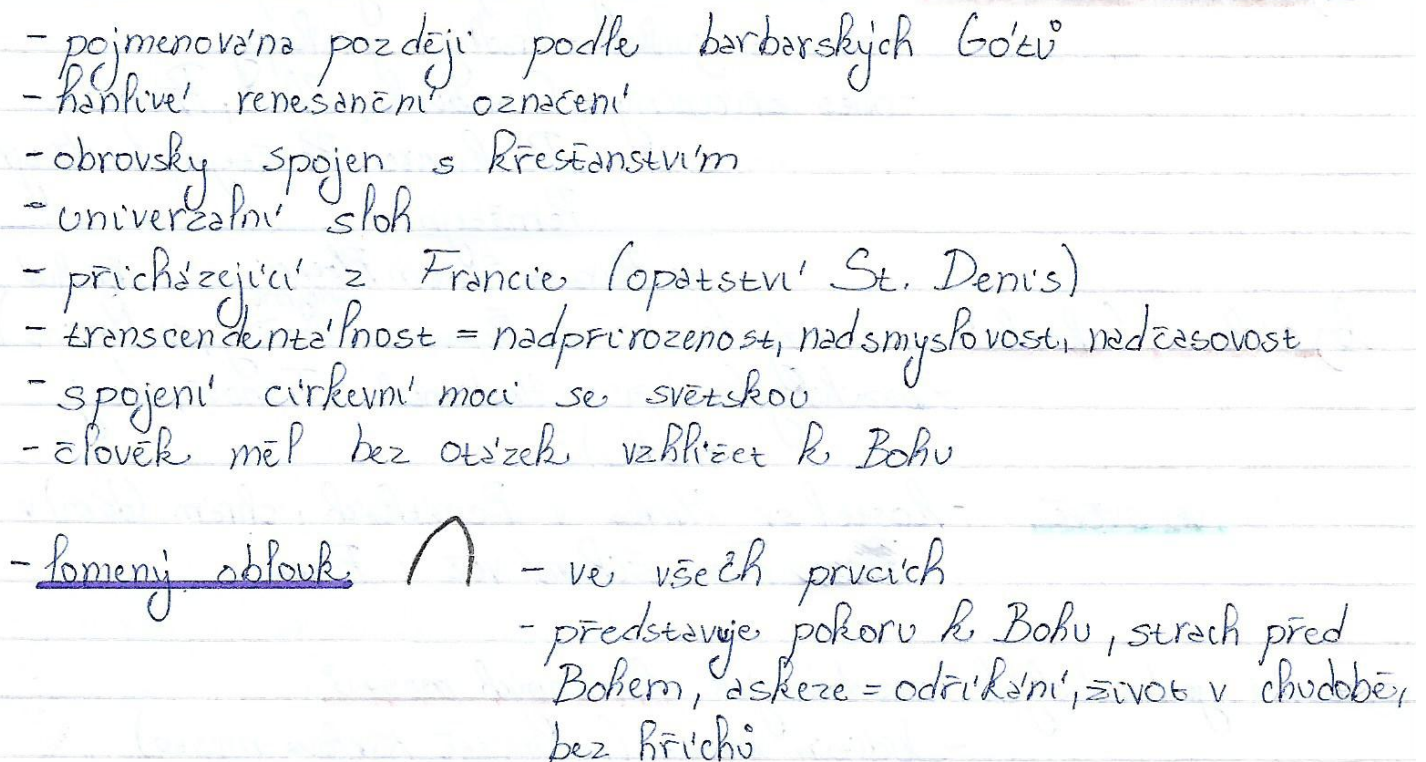 - pojmenována později podle barbarských Gótů
- hanlivé renesanční označení
- obrovsky spojen s křesťanstvím
- univerzální sloh
- přicházející z Francie (opatství St. Denis)
- transcendentálnost = nadpřirozenost, nadsmyslovost, nadčasovost
- spojení církevní moci se světskou
- člověk měl bez otázek vzhlížet k Bohu
- lomený oblouk - ve všech prvcích
- představuje pokoru k Bohu, strach před
Bohem, askeze = odříkání, život v chudobě,
bez hříchů